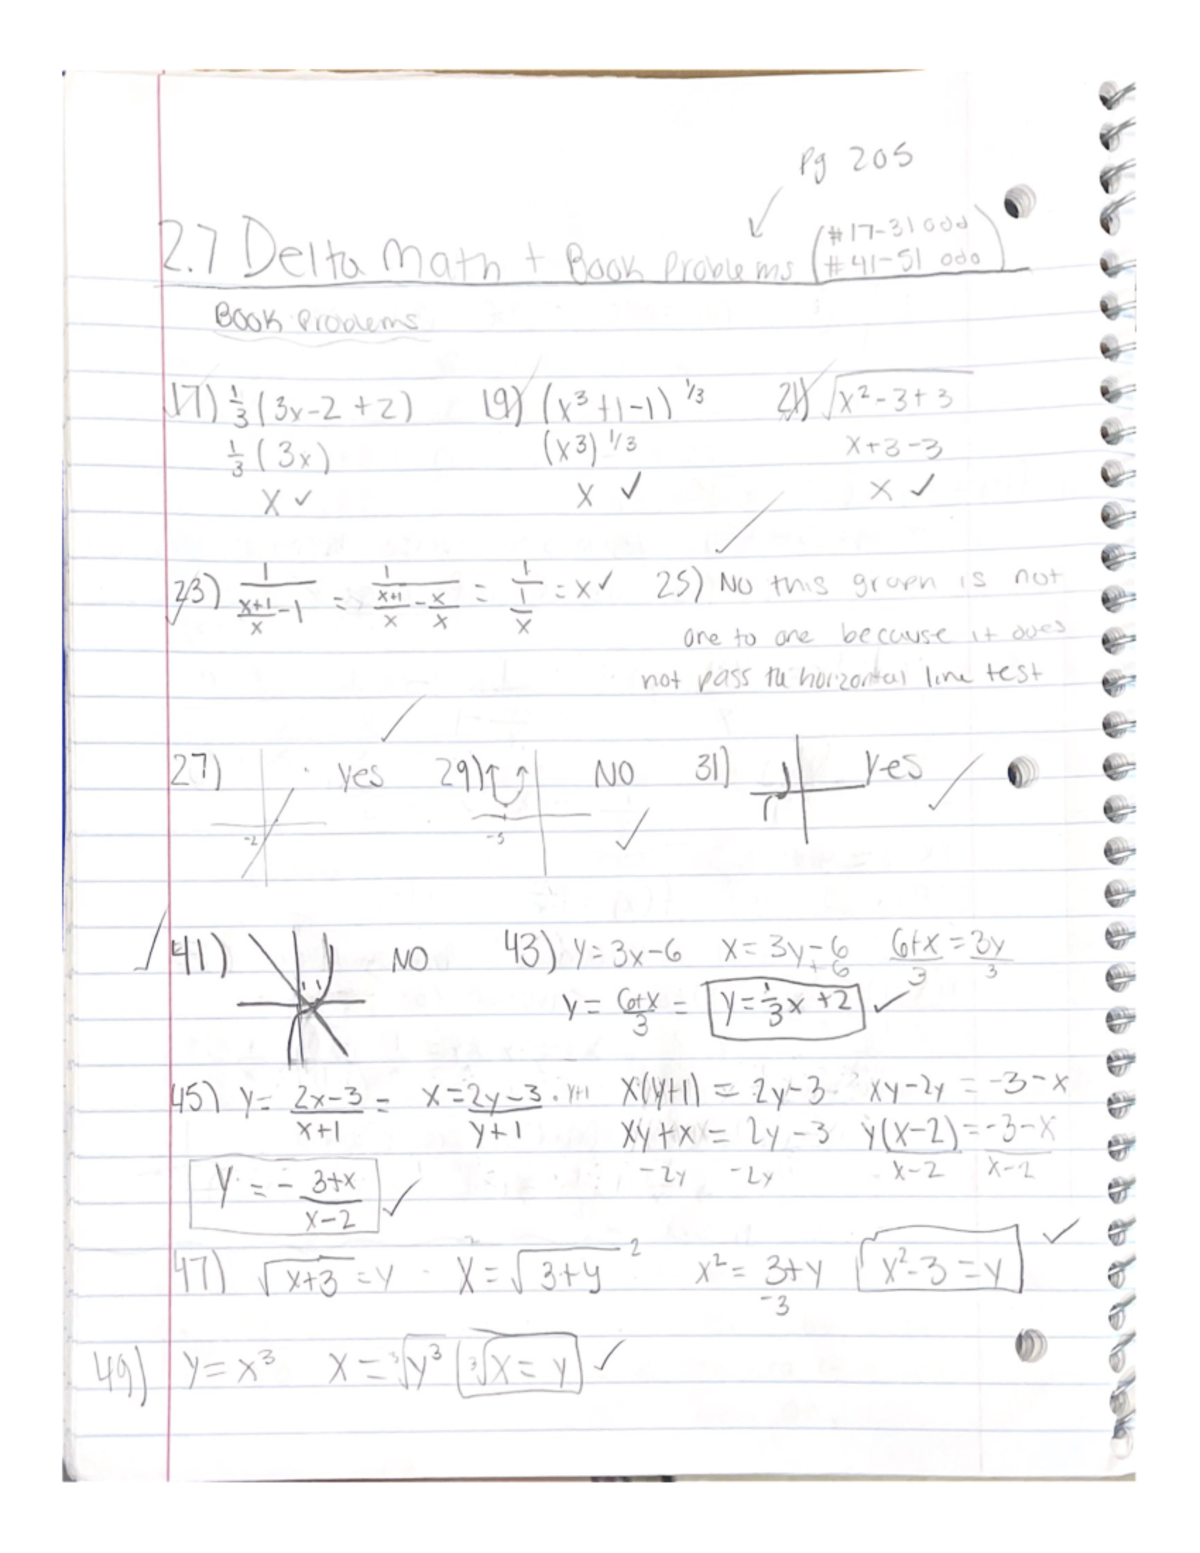 Pg 205
2.7 Delta Math + Book Problems (#17-31 odd
#41-51 odd)
Book Problems
17) 1/3(3x-2+2) 19) (x³+1-1)^1/3 21) √x²-3+3
1/3(3x) (x³)^1/3 x+3-3
x ✓ x ✓ x ✓
23) 1/((x+1)/x - 1) = 1/((x+1)/x - x/x) = 1/(1/x) = x ✓ 25) No this graph is not
one to one because it does
not pass the horizontal line test
27) -2 yes 29) -5 NO 31) yes
41) NO 43) y=3x-6 x=3y-6 +6 (6+x)/3 = 3y/3
y = (6+x)/3 = y=1/3x+2 ✓
45) y= (2x-3)/(x+1) = x=(2y-3)/(y+1) · y+1 x(y+1) = 2y-3 xy-2y = -3-x
xy+x = 2y-3 y(x-2) = -3-x
-2y -2y x-2 x-2
y = - (3+x)/(x-2) ✓
47) √x+3 = y x² = √3+y ² x² = 3+y x²-3 = y ✓
-3
49) y=x³ x = ³√y³ ³√x = y ✓